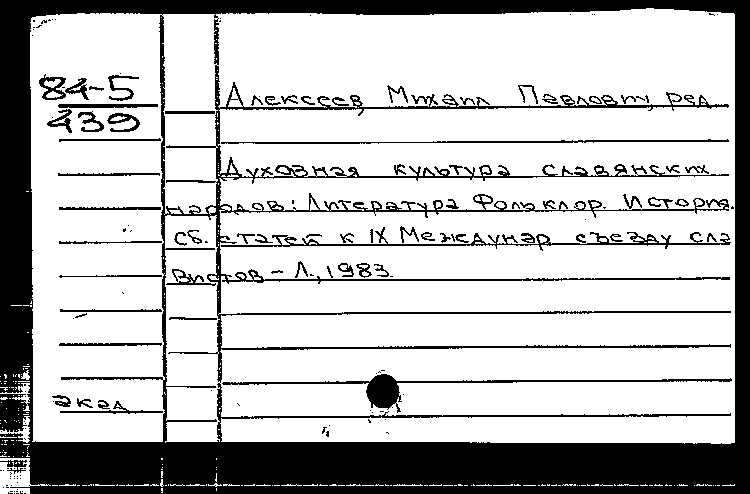 84-5
439
Алексеев, Михаил Павлович, ред.
Духовная культура славянских
народов: Литература. Фольклор. История.
Сб. статей к IX Междунар съезду сла
вистов - Л., 1983.
акад